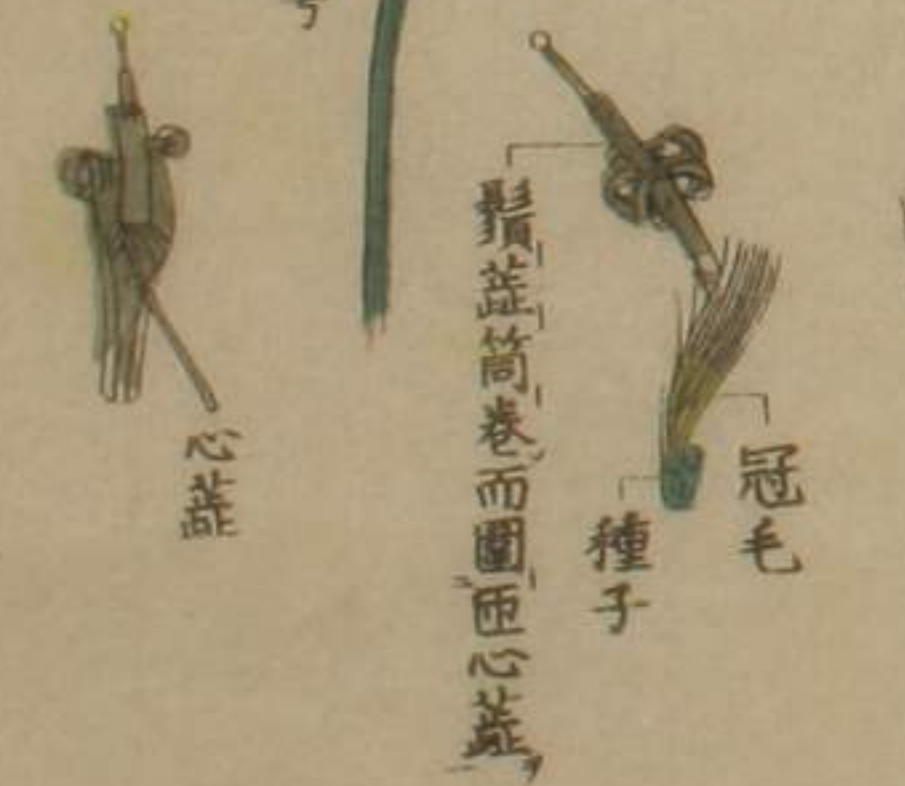 冠毛
種子
鬚蕋筒巻而圍匝心蕋ヲ
心蕋